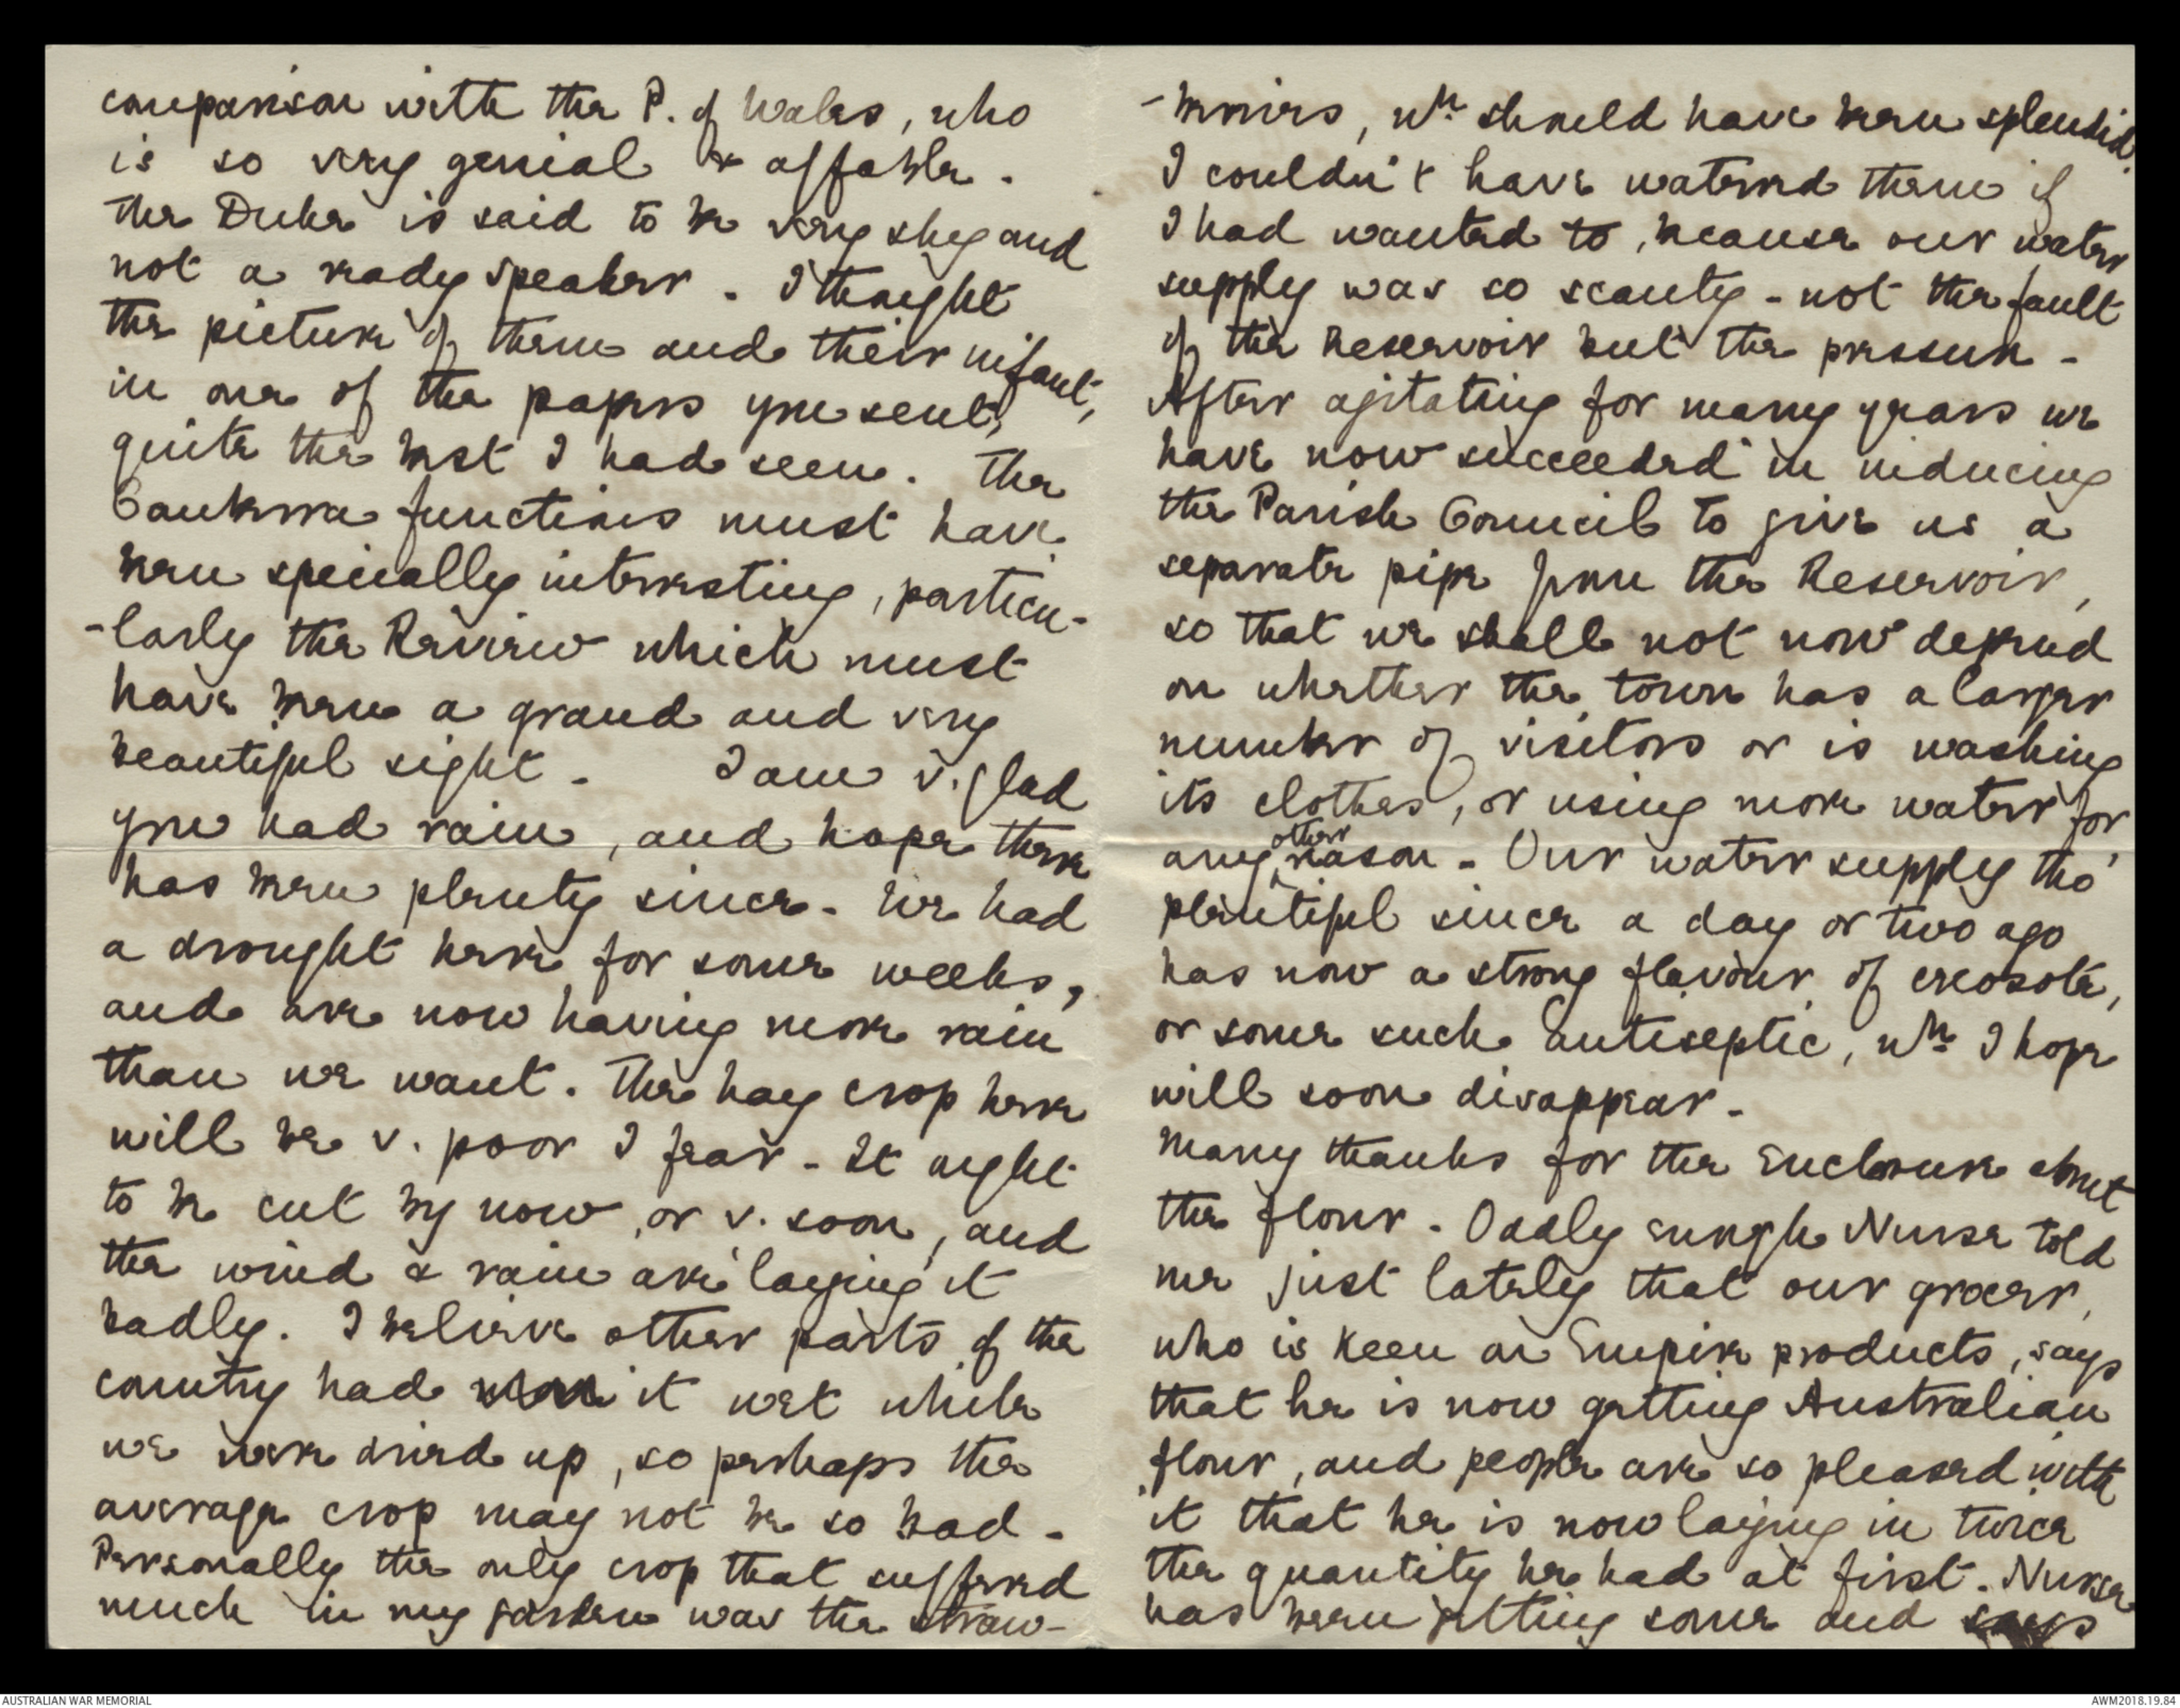 comparison with the P. of Wales, who
is so very genial & affable.
The Duke is said to be very shy and
not a ready speaker. I thought
the picture of them and their infant,
in one of the papers you sent,
quite the best I had seen. The
Canberra functions must have
been specially interesting, particu-
-larly the Review which must
have been a grand and very
beautiful sight. I am v. glad
you had rain, and hope there
has been plenty since. We had
a drought here for some weeks,
and are now having more rain
than we want. The hay crop here
will be v. poor I fear - It ought
to be cut by now, or v. soon, and
the wind & rain are laying it
badly. I believe other parts of the
country had it wet while
we were dried up, so perhaps the
average crop may not be so bad -
Personally the only crop that suffered
much in my garden was the straw-
-berries, wh. should have been splendid.
I couldn't have watered them if
I had wanted to, because our water
supply was so scanty - not the fault
of the Reservoir but the pressure -
After agitating for many years we
have now succeeded in inducing
the Parish Council to give us a
separate pipe from the Reservoir,
so that we shall not now depend
on whether the town has a larger
number of visitors or is washing
its clothes, or using more water for
any other reason - Our water supply tho'
plentiful since a day or two ago
has now a strong flavour of creosote,
or some such antiseptic, wh. I hope
will soon disappear -
Many thanks for the Enclosure about
the flour - Oddly enough Nurse told
me just lately that our grocer,
who is keen on Empire products, says
that he is now getting Australian
flour, and people are so pleased with
it that he is now laying in twice
the quantity he had at first. Nurse
has been getting some and says
AUSTRALIAN WAR MEMORIAL
AWM2018.19.84